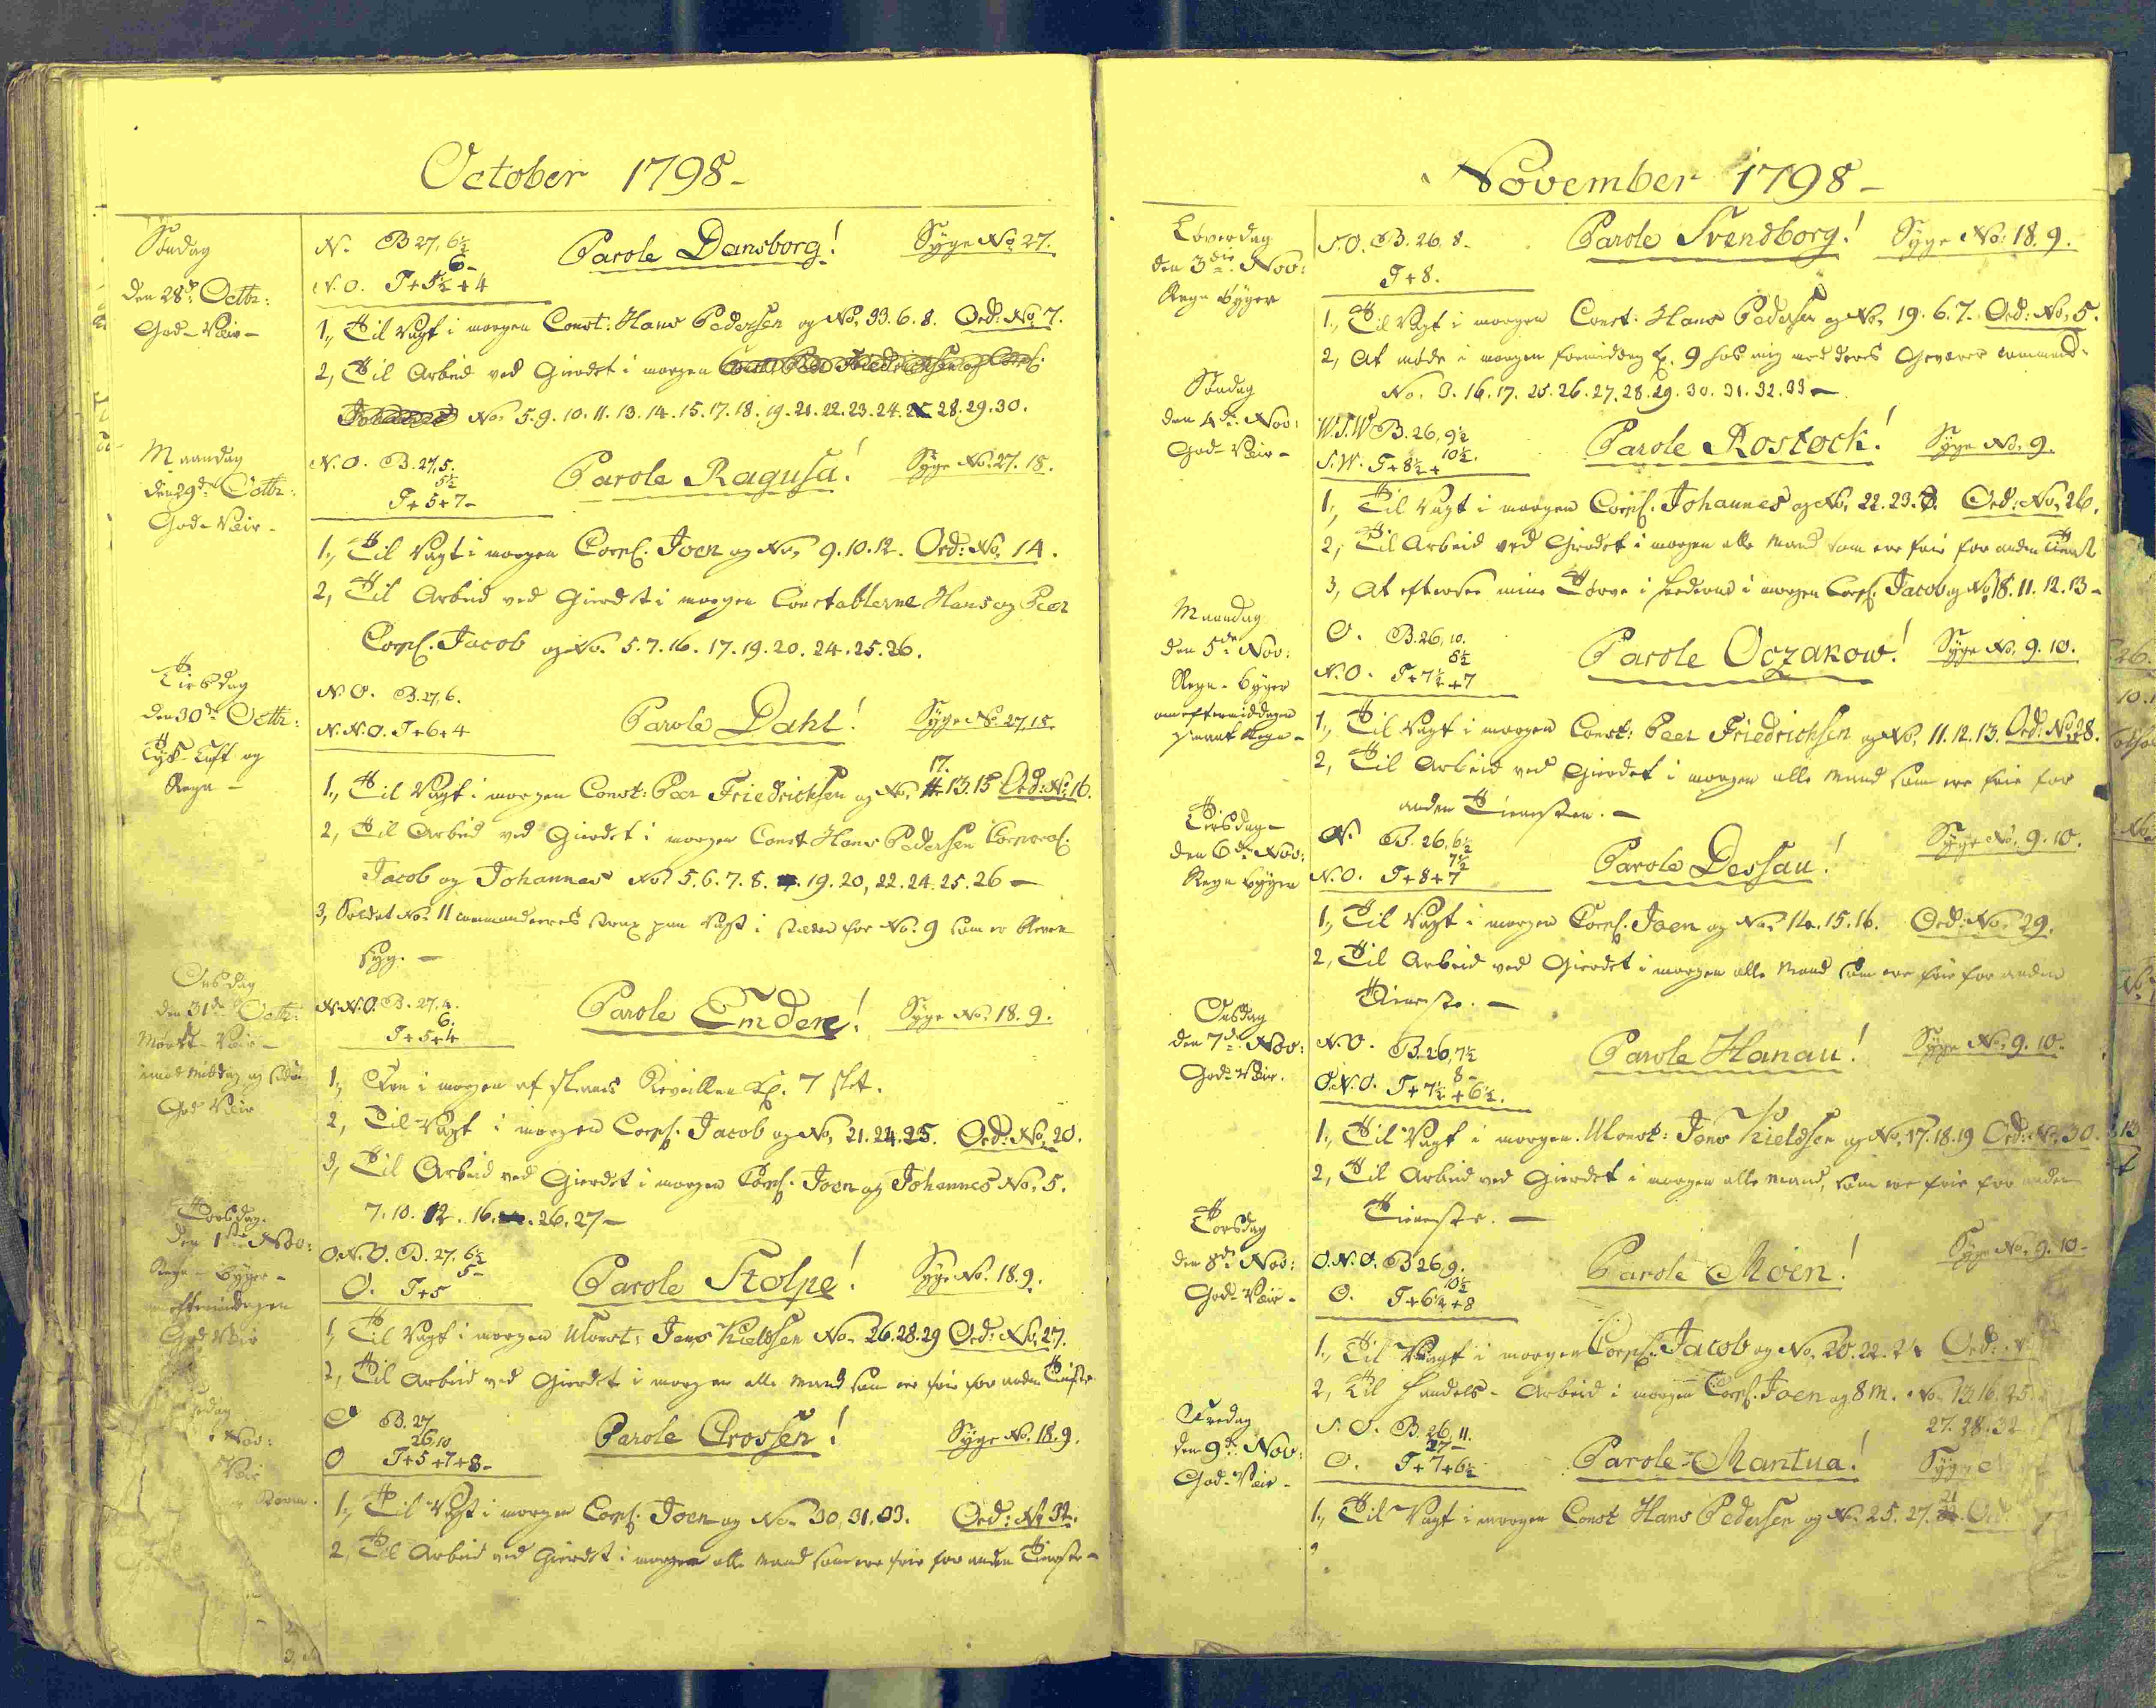 October 1798-
Søndag
den 28de Octbr:
God-Veir-
N. B 27, 6½
6-
N.O. T+5½+4
Parole Dansborg!
Syge No 27.
1., Til Vagt i morgen Const: Hans Pedersen og No. 33.6.8. Ord: No. 7.
2, Til Arbeid ved Gierdet i morgen
No. 5.9.10.11.13.14.15.17.18.19.21.22.23.24. 28.29.30.
Maandag
den 29de Octbr:
God-Veir-
N.O. B.27,5.
5½
T+5+7-
Parole Ragusa!
Syge No. 27.15.
1., Til Vagt i morgen Corpl. Joen og No. 9.10.12. Ord: No. 14.
2, Til Arbeid ved Gierdet i morgen Constablerne Hans og Peer
Corpl. Jacob og No. 5.7.16.17.19.20.24.25.26.
Tirsdag
den 30de Octbr:
Tyk-Luft og
Regn-
N.O. B.27,6.
N.N.O. T+6+4
Parole Dahl!
Syge No. 27.15.
17.
1., Til Vagt i morgen Const: Peer Friedrichsen og No. 13.15 Ord: No. 16.
2, Til Arbeid ved Gierdet i morgen Const Hans Pedersen Corporal:
Jacob og Johannes No. 5.6.7.8. 19.20,22.24.25.26-
3, Soldat No. 11 commanderes strax paa Vagt i stæden for No. 9 som er bleven
syg.-
Onsdag
den 31de Octbr:
Mørkt-Veir-
imod Middag og
God Veir
N.N.O. B.27,4.
6.
T+5+4
Parole Emden!
Syge No. 18.9.
1., Fra i morgen af slaaes Reveillen Kl. 7 slet.
2, Til Vagt i morgen Corpl. Jacob og No. 21.24.25. Ord: No. 20.
3, Til Arbeid ved Gierdet i morgen Corpl. Joen og Johannes No. 5.
7.10.12.16. 26.27-
Torsdag.
den 1ste Nov:
Regn-byger-
eftermiddagen
God Veir
O.N.O. B.27.6½
5-
O. T+5
Parole Stolpe!
Syge No. 18.9.
1, Til Vagt i morgen Uconst: Jens Kieldsen No. 26.28.29 Ord: No. 27.
2, Til Arbeid ved Gierdet i morgen alle Mand som ere frie for anden Tieneste
Nov:
Veir
O B.27
26,10
O T+5+7+8-
Parole Crossen!
Syge No. 18.9.
1., Til Vagt i morgen Corpl. Joen og No. 30,31,33. Ord: No 32.
2, Til Arbeid ved Gierdet i morgen alle Mand som ere frie for anden Tieneste-
November 1798-
Løverdag
den 3die Nov:
Regn Byger
S.O. B.26,8-
T+8.
Parole Svendborg!
Syge No: 18.9.
1., Til Vagt i morgen Const: Hans Pedersen og No. 19.6.7. Ord: No. 5.
2, At møde i morgen formidag Kl. 9 hos mig med deres Geværer
No. 3.16.17.25.26.27.28.29.30.31.32.33-
Søndag
den 4de Nov:
God-Veir-
W.S.W B.26,9½
10½.
S.W. T+8½+
Parole Rostock!
Syge No. 9.
1., Til Vagt i morgen Corpl. Johannes og No. 22.23.8. Ord: No. 26.
2, Til Arbeid ved Gierdet i morgen alle Mand som ere frie for anden Tieneste
3, At eftersee mine Tørve i morgen Corpl. Jacob og No. 18.11.12.13-
Maandag
den 5de Nov:
Regn-byger
om eftermiddagen
Regn-
O. B.26,10.
8½
N.O. T+7½+7
Parole Oczakow!
Syge No. 9.10.
1., Til Vagt i morgen Const: Peer Friedrichsen og No. 11.12.13. Ord: No. 28.
2, Til Arbeid ved Gierdet i morgen alle Mand som ere frie for
anden Tienesten.-
Tirsdag-
den 6de Nov:
Regn bÿger
N. B.26,6½
7½
N.O. T+8+7
Parole Dessau!
Syge No. 9.10.
1., Til Vagt i morgen Corpl. Joen og No. 14.15.16. Ord: No. 29.
2, Til Arbeid ved Gierdet i morgen alle Mand som ere frie for anden
Tieneste.-
Onsdag
den 7de Nov:
God-Veir.
N.O. B.26,7½
8-
O.N.O. T+7½+6½.
Parole Hanau!
Syge No. 9.10.
1., Til Vagt i morgen. Uconst: Jens Kieldsen og No. 17.18.19 Ord: No. 30.
2, Til Arbeid ved Gierdet i morgen alle Mand, som ere frie for anden
Tieneste.-
Torsdag
den 8de Nov:
God-Veir-
O.N.O. B 26,9.
10½
O. T+6½+8
Parole Moen!
Syge No. 9.10-
1., Til Vagt i morgen Corpl: Jacob og No. 20.22.24 Ord:
2, Til Handels-Arbeid i morgen Corpl. Joen og 8 M. No. 13.16.25.
27.28.32
Fredag
den 9de Nov:
God-Veir-
S.O. B.26,11.
27-
O. T+7+6½
Parole-Mantua!
Syge
21
1., Til Vagt i morgen Const Hans Pedersen og No. 25.27. Ord.